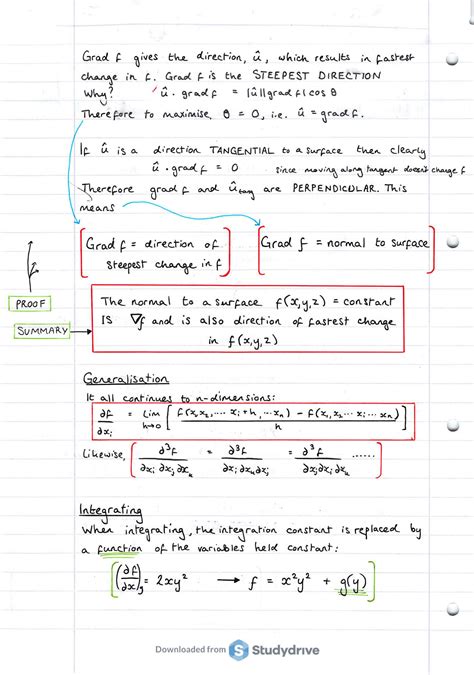 Grad f gives the direction, û, which results in fastest
change in f. Grad f is the STEEPEST DIRECTION
Why? û · grad f = |û||grad f| cos θ
Therefore to maximise, θ = 0, i.e. û = grad f.
If û is a direction TANGENTIAL to a surface then clearly
û · grad f = 0 since moving along tangent doesn't change f
Therefore grad f and û_tang are PERPENDICULAR. This
means
[Grad f = direction of steepest change in f]
[Grad f = normal to surface]
PROOF
SUMMARY
The normal to a surface f(x,y,z) = constant
IS ∇f and is also direction of fastest change
in f(x,y,z)
Generalisation
It all continues to n-dimensions:
∂f/∂xᵢ = lim h→0 [f(x₁x₂,... xᵢ+h,...xₙ) − f(x₁x₂... xᵢ...xₙ) / h]
Likewise, ∂³f/∂xᵢ∂xⱼ∂xₖ = ∂³f/∂xᵢ∂xₖ∂xⱼ = ∂³f/∂xⱼ∂xᵢ∂xₖ ......
Integrating
When integrating, the integration constant is replaced by
a function of the variables held constant:
(∂f/∂x)y = 2xy² → f = x²y² + g(y)
Downloaded from S Studydrive